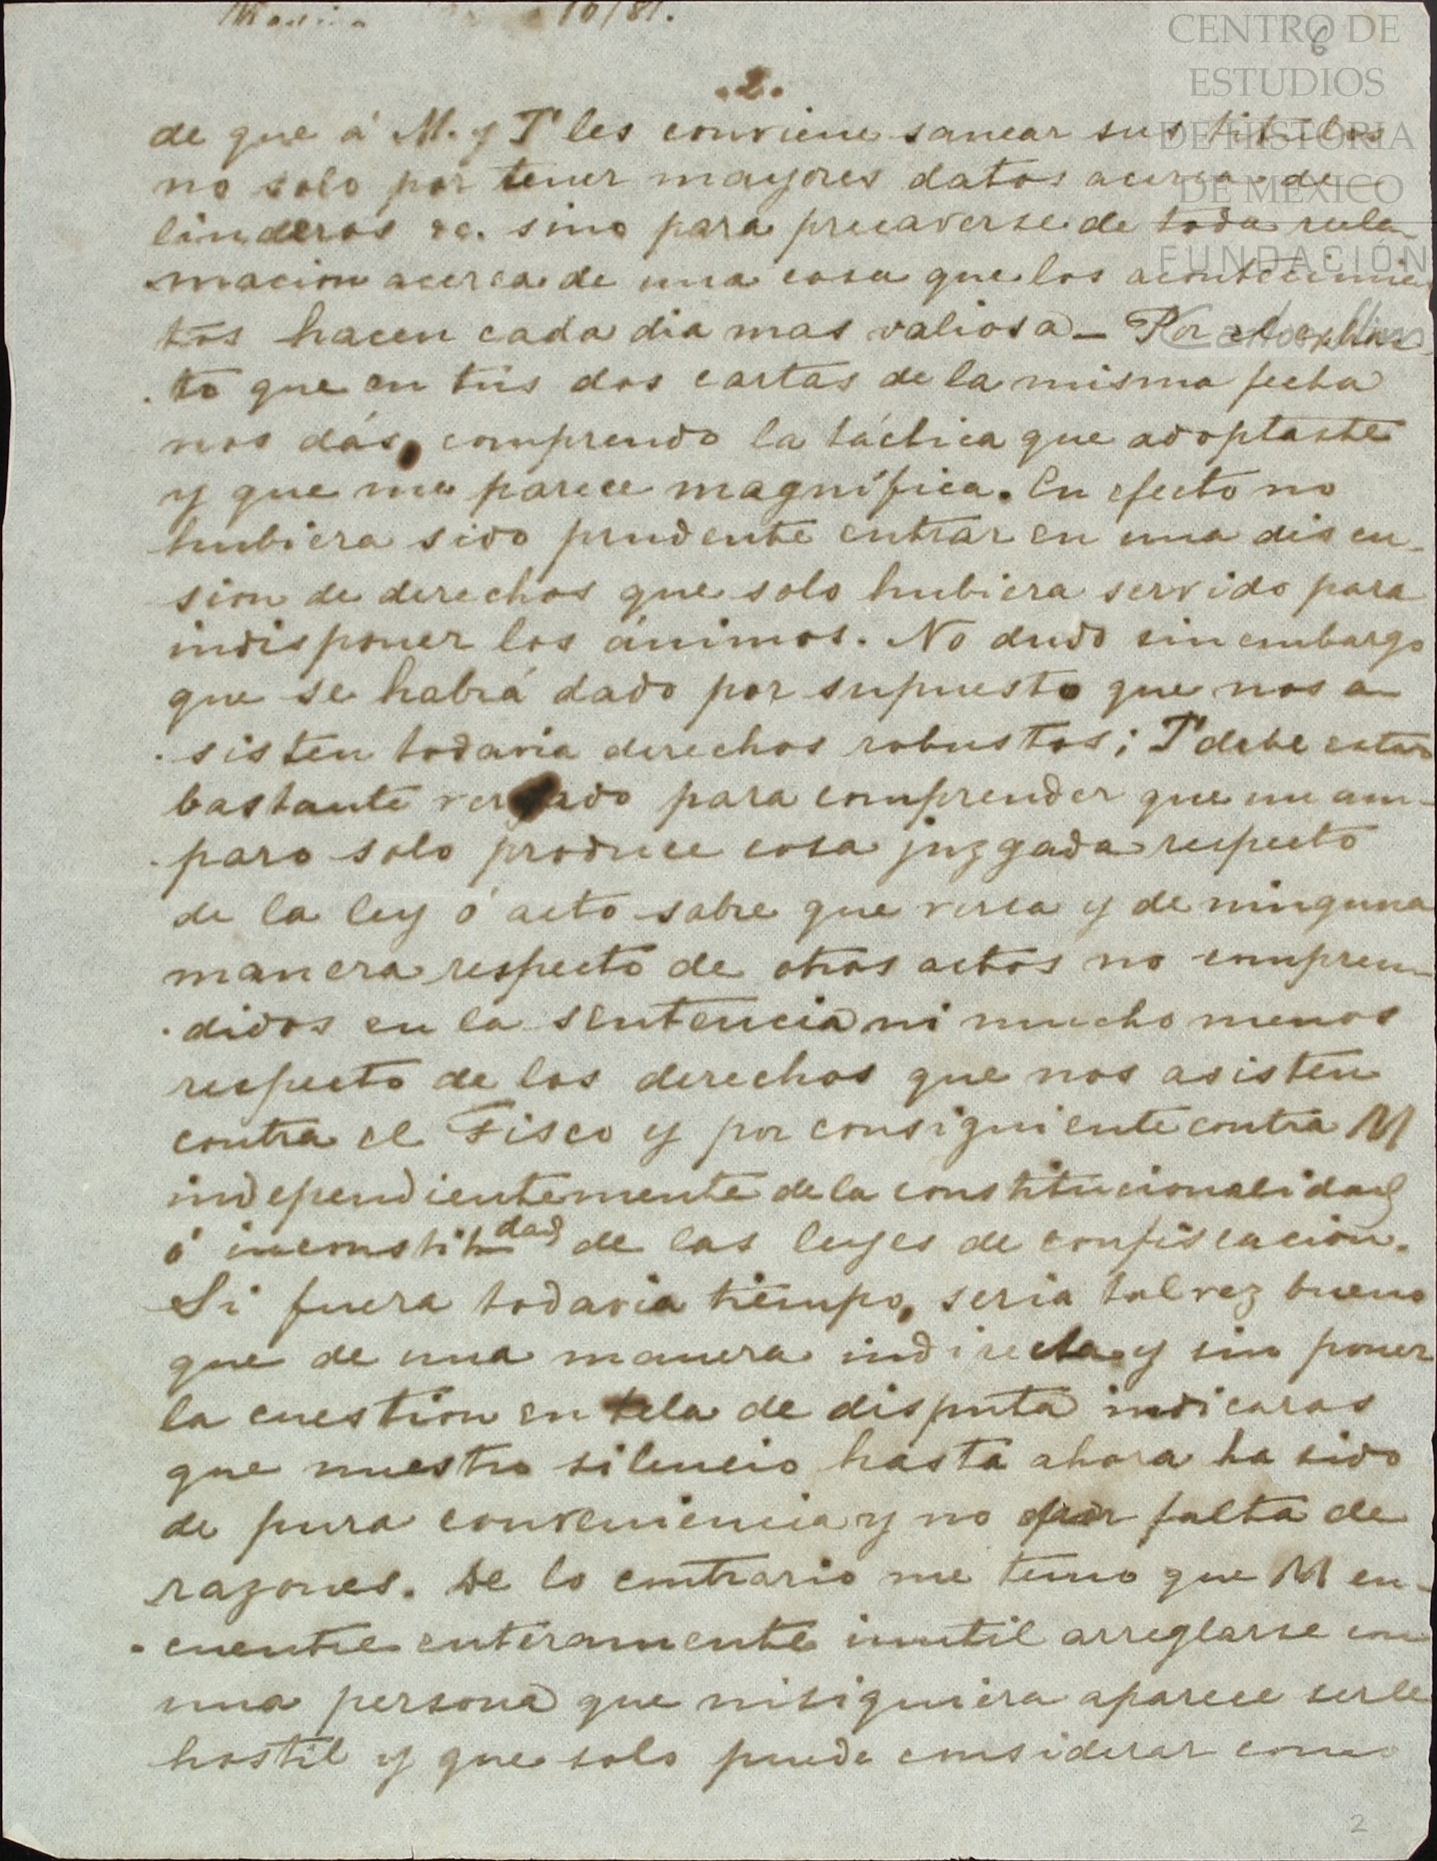 10/81.
6
.2.
de que á M. y T les conviene sanear sus titulos
no solo por tener mayores datos acerca de
linderos &c. sino para precaverse de toda recla-
macion acerca de una cosa que los acontecimien
tos hacen cada dia mas valiosa — Por el
to que en tus dos cartas de la misma fecha
nos dás, comprendo la táctica que adoptaste
y que me parece magnífica. En efecto no
hubiera sido prudente entrar en una discu-
sion de derechos que solo hubiera servido para
indisponer los ánimos. No dudo sin embargo
que se habrá dado por supuesto que nos a-
sisten todavia derechos robustos; T debe estar
bastante versado para comprender que un am-
paro solo produce cosa juzgada respecto
de la ley ó acto sobre que versa y de ninguna
manera respecto de otros actos no compren-
didos en la sentencia ni mucho menos
respecto de los derechos que nos asisten
contra el Fisco y por consiguiente contra M
independientemente de la constitucionalidad
ó inconstitdad de las leyes de confiscacion.
Si fuera todavia tiempo, seria tal vez bueno
que de una manera indirecta y sin poner
la cuestion en tela de disputa indicaras
que nuestro silencio hasta ahora ha sido
de pura conveniencia y no por falta de
razones. De lo contrario me temo que M en-
cuentre enteramente inutil arreglarse con
una persona que nisiquiera aparece serle
hostil y que solo puede considerar como
2
CENTRO DE
ESTUDIOS
DE HISTORIA
DE MÉXICO
FUNDACIÓN
Carlos Slim